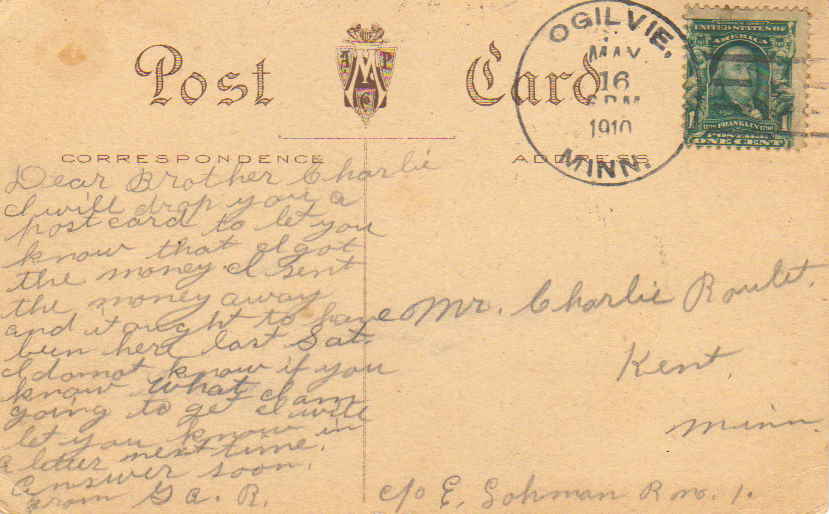 Post Card
OGILVIE,
MAY
16
PM
1910
MINN.
UNITED STATES OF
AMERICA
FRANKLIN
1 1
POSTAGE
ONE CENT
CORRESPONDENCE
ADDRESS
Dear Brother Charlie
I will drop you a
post card to let you
know that I got
the money. I sent
the money away
and it aught to have
bun here last Sat.
I do not know if you
know what I am
going to get I will
let you know in
a letter next time.
answer soon.
from Ga. R.
Mr. Charlie Roulet.
Kent.
Minn.
c/o E. Lohman R no. 1.